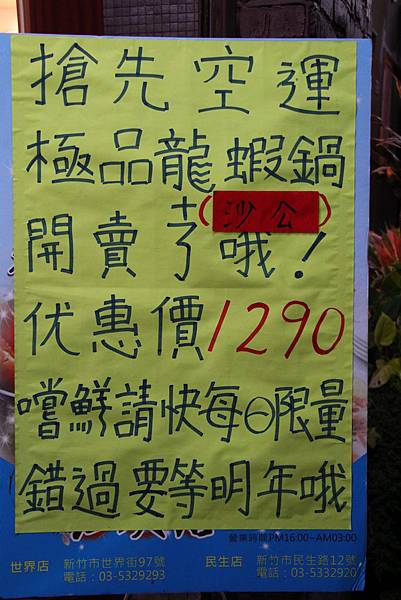 搶先空運
極品龍蝦鍋
(沙公)
開賣了哦!
优惠價1290
嚐鮮請快每日限量
錯過要等明年哦
營業時間PM16:00~AM03:00
世界店 新竹市世界街97號 民生店 新竹市民生路12號
電話：03-5329293 電話：03-5332920